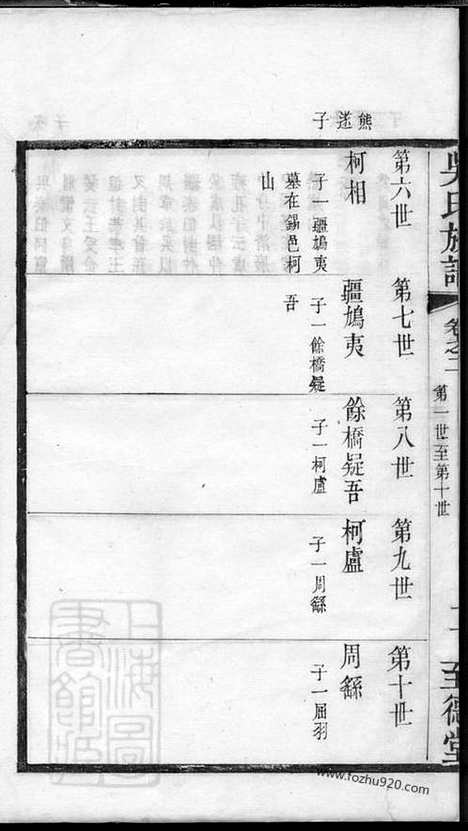 吳氏族譜
卷之二
第一世至第十世
二
至德堂
熊遂子
第六世
柯相
子一疆鳩夷
墓在錫邑柯
山
第七世
疆鳩夷
子一餘橋疑
吾
第八世
餘橋疑吾
子一柯盧
第九世
柯盧
子一周繇
第十世
周繇
子一屈羽
上海圖書館藏
www.fozhu920.com